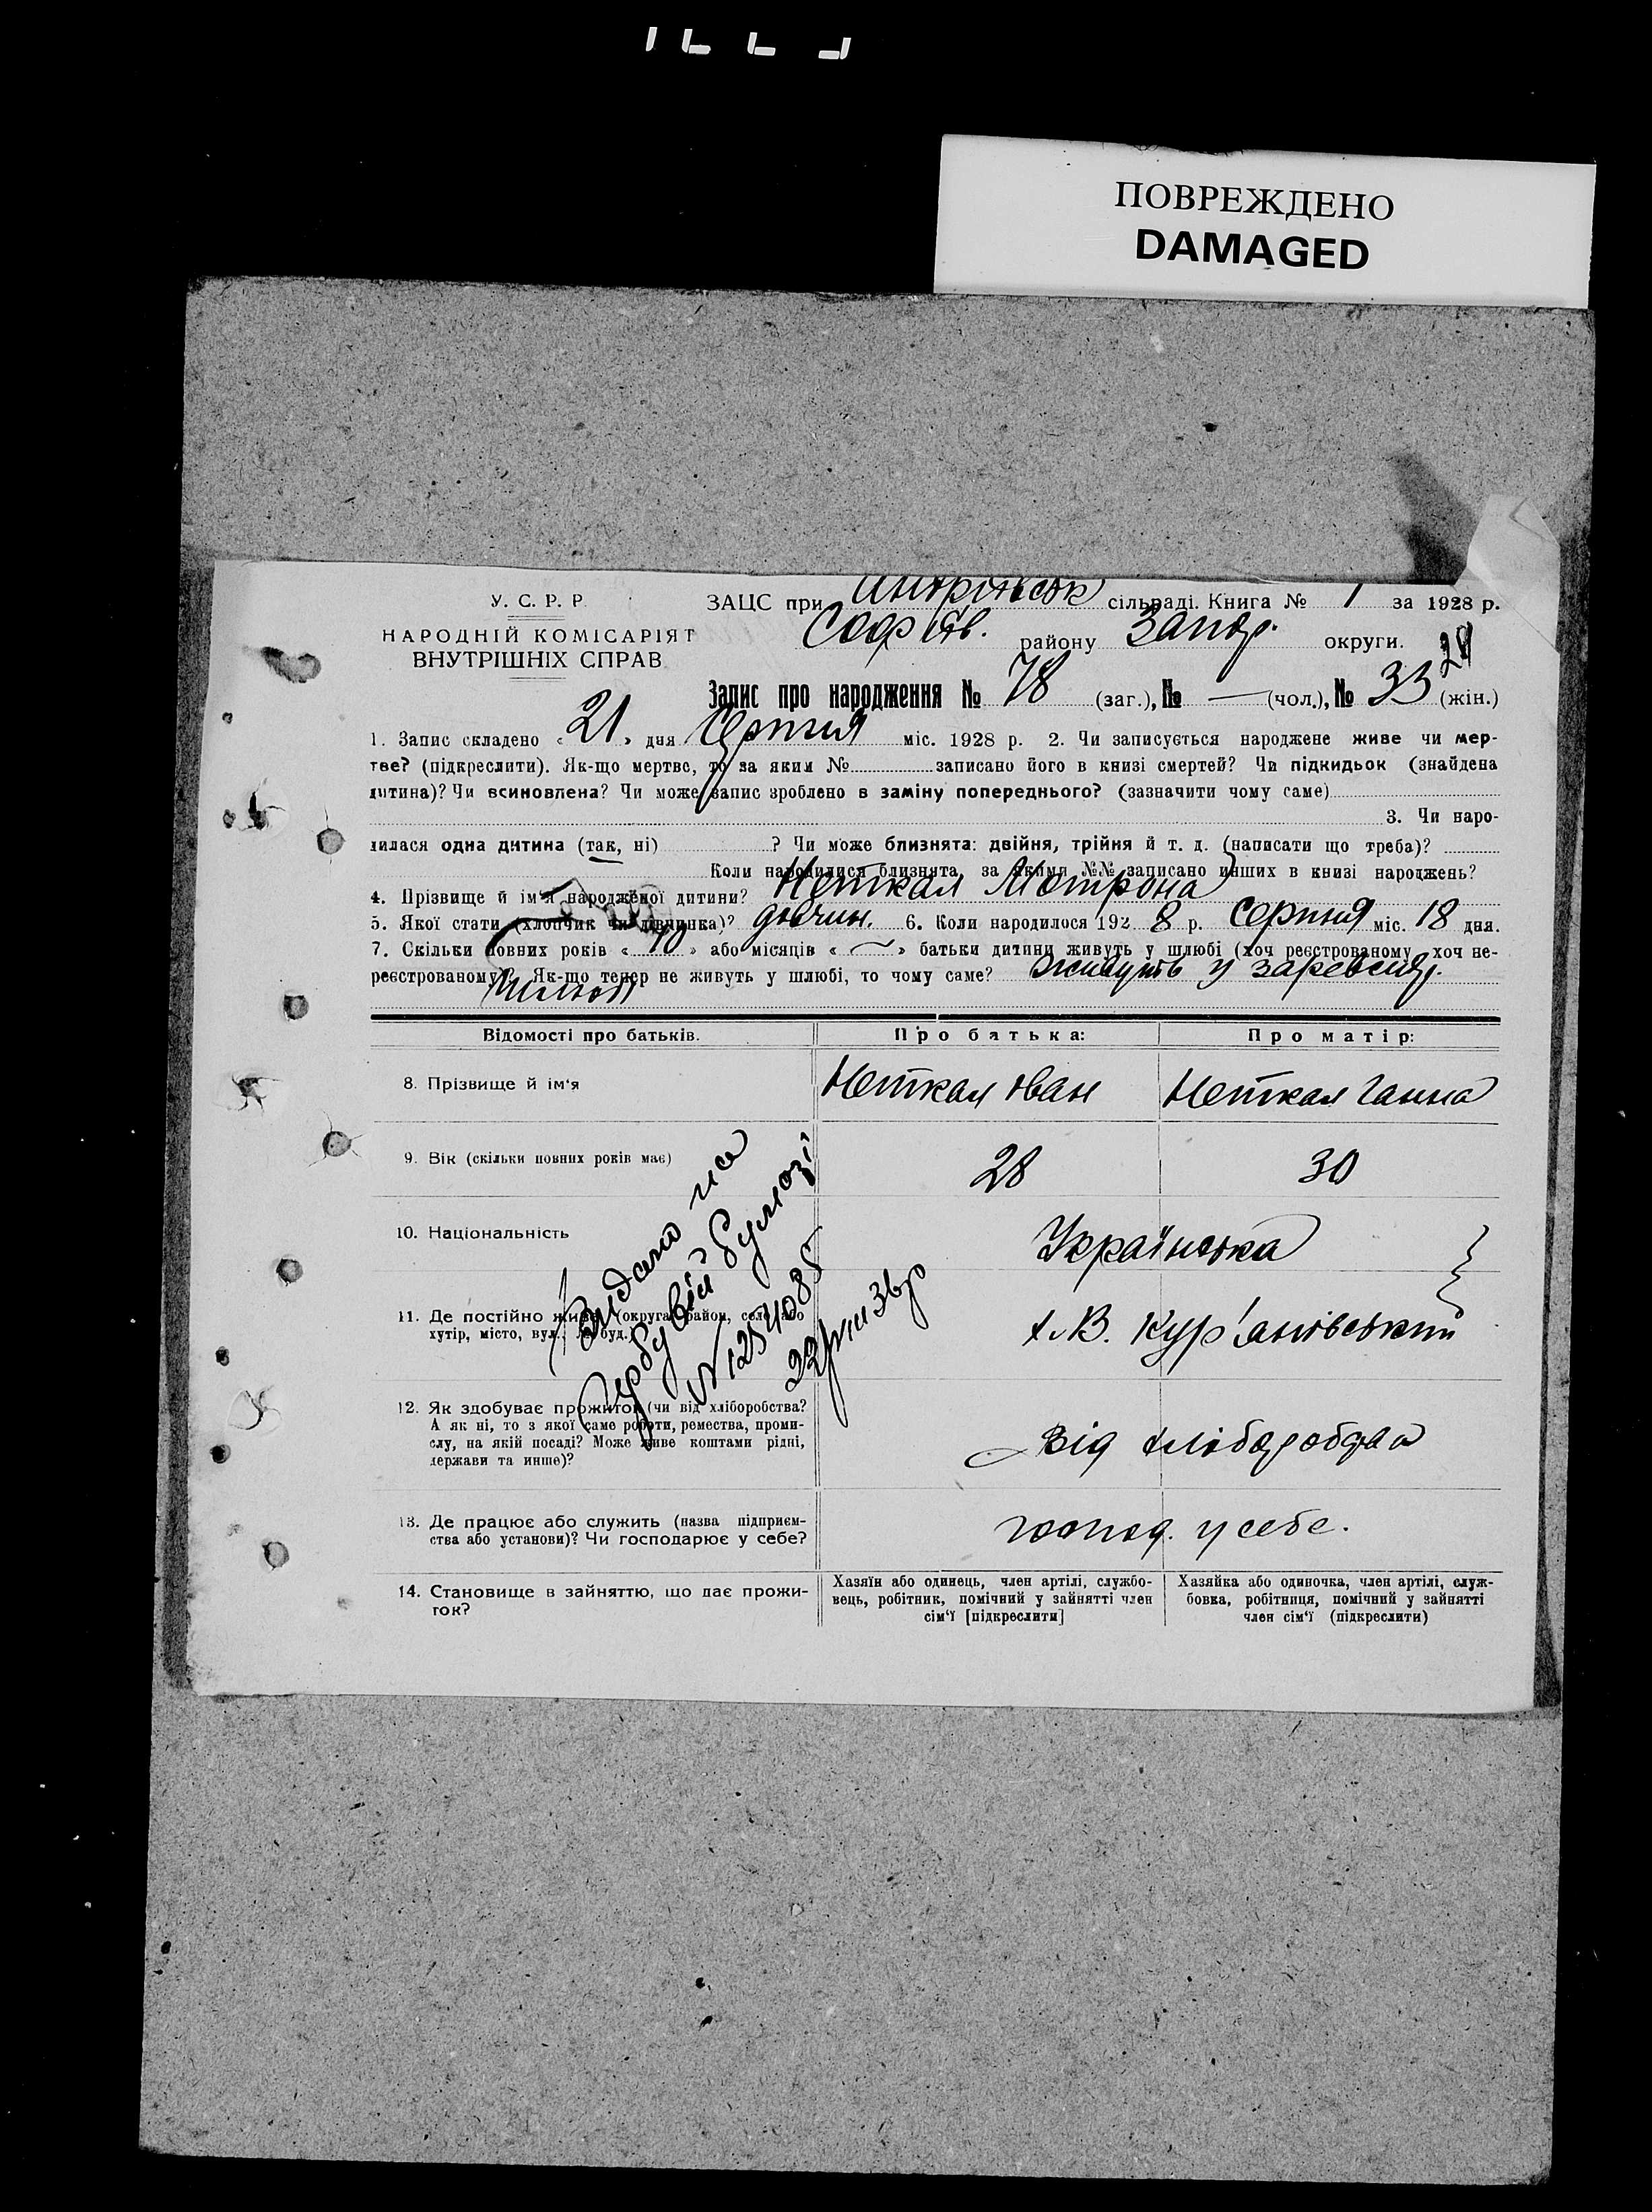 ПОВРЕЖДЕНО
DAMAGED
У. С. Р. Р.
НАРОДНІЙ КОМІСАРІЯТ
ВНУТРІШНІХ СПРАВ
ЗАЦС при Андріївськ сільраді. Книга № 1 за 1928 р.
Софіїв. району Запор. округи.
Запис про народження № 78 (заг.), № — (чол.), № 33 (жін.)
1. Запис складено « 21 » дня Серпня міс. 1928 р. 2. Чи записується народжене живе чи мер-
тве? (підкреслити). Як-що мертве, то за яким № записано його в книзі смертей? Чи підкидьок (знайдена
дитина)? Чи всиновлена? Чи може запис зроблено в заміну попереднього? (зазначити чому саме)
3. Чи наро-
дилася одна дитина (так, ні) ? Чи може близнята: двійня, трійня й т. д. (написати що треба)?
Коли народилися близнята, за якими №№ записано инших в книзі народжень?
4. Прізвище й ім'я народженої дитини? Неткал Мотрона
5. Якої стати (хлопчик чи дівчинка)? дівчин. 6. Коли народилося 192 8 р. Серпня міс. 18 дня.
7. Скільки повних років « 10 » або місяців « — » батьки дитини живуть у шлюбі (хоч реєстрованому, хоч не-
реєстрованому)? Як-що тепер не живуть у шлюбі, то чому саме? живуть у
шлюбі
Відомості про батьків. Про батька: Про матір:
8. Прізвище й ім'я Неткал Іван Неткал Ганна
9. Вік (скільки повних років має) 28 30
10. Національність Українська
11. Де постійно живе (округа, район, село або
хутір, місто, вул., № буд.) х. В. Кур'анівський
12. Як здобуває прожиток (чи від хліборобства?
А як ні, то з якої саме роботи, ремества, проми-
слу, на якій посаді? Може живе коштами рідні,
держави та инше)? Від хліборобства
13. Де працює або служить (назва підприєм-
ства або установи)? Чи господарює у себе? господ. у себе.
14. Становище в зайняттю, що дає прожи-
ток?
Хазяїн або одинець, член артілі, службо-
вець, робітник, помічний у зайнятті член
сім'ї [підкреслити]
Хазяйка або одиночка, член артілі, служ-
бовка, робітниця, помічний у зайнятті
член сім'ї (підкреслити)
Видано на